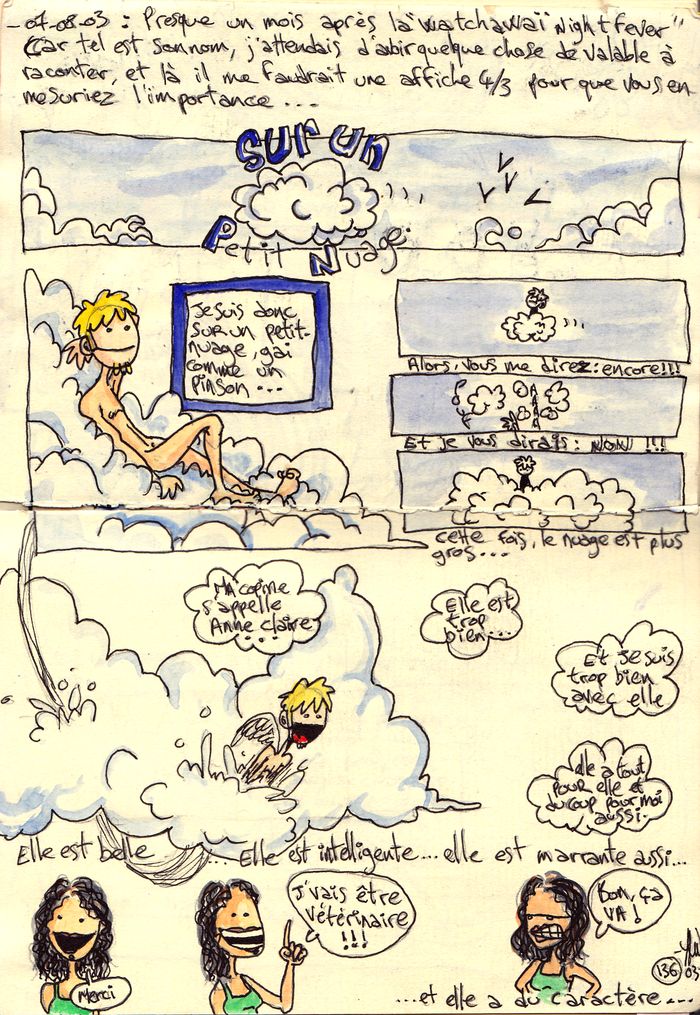 - 07.08.03 : Presque un mois après la "watchawaï Night fever"
(car tel est son nom, j'attendais d'avoir quelque chose de valable à
raconter, et là il me faudrait une affiche 4/3 pour que vous en
mesuriez l'importance ...
SUR UN
Petit Nuage.
Je suis donc
SUR un petit-
nuage, gai
comme un
pinson ...
Alors, vous me direz : encore!!!
Et je vous dirais : NON !!!
cette fois, le nuage est plus
gros...
Ma copine
s'appelle
Anne Claire
...
Elle est
trop
bien...
Et je suis
trop bien
avec elle
elle a tout
pour elle et
du coup pour moi
aussi.
Elle est belle ... Elle est intelligente... elle est marrante aussi...
Merci
J'vais être
Vétérinaire
!!!
Bon, ça
VA !
...et elle a du caractère...
136
03